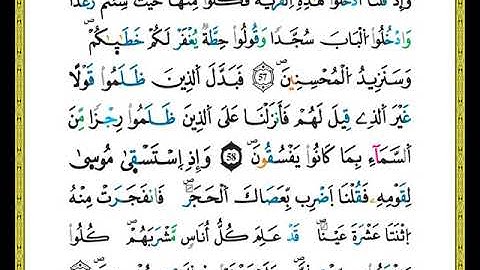 وَإِذْ قُلْنَا ادْخُلُوا هَٰذِهِ الْقَرْيَةَ فَكُلُوا مِنْهَا حَيْثُ شِئْتُمْ رَغَدًا
وَادْخُلُوا الْبَابَ سُجَّدًا وَقُولُوا حِطَّةٌ يُغْفَرْ لَكُمْ خَطَٰيَٰكُمْ ۖ
وَسَنَزِيدُ الْمُحْسِنِينَ ۖ 57 فَبَدَّلَ الَّذِينَ ظَلَمُوا قَوْلًا
غَيْرَ الَّذِي قِيلَ لَهُمْ فَأَنزَلْنَا عَلَى الَّذِينَ ظَلَمُوا رِجْزًا مِّنَ
السَّمَآءِ بِمَا كَانُوا يَفْسُقُونَ ۖ 58 وَإِذِ اِسْتَسْقَىٰ مُوسَىٰ
لِقَوْمِهِ فَقُلْنَا اَضْرِب بِّعَصَاكَ الْحَجَرَ ۖ فَانفَجَرَتْ مِنْهُ
اثْنَتَا عَشْرَةَ عَيْنًا ۖ قَدْ عَلِمَ كُلُّ أُنَاسٍ مَّشْرَبَهُمْ ۖ كُلُوا